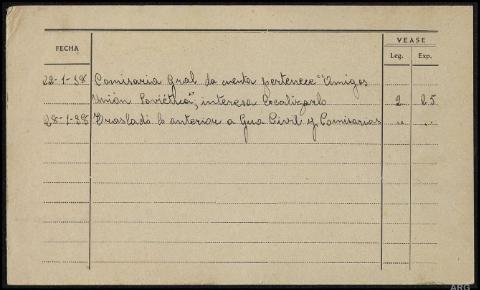 VEASE
FECHA
Leg. Exp.
22-1-38 Comisaria Gral da cuenta pertenece "Amigos
Unión Soviética", interesa localizarlo 2 25
28-1-38 Traslado lo anterior a Gua Civil y Comisarias " "
ARG